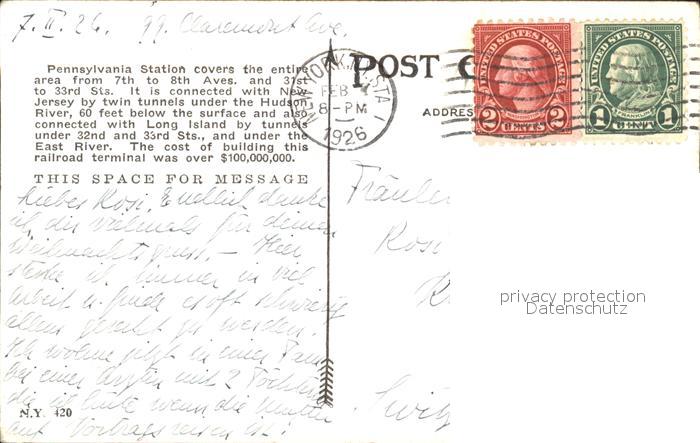 7. II. 26. 99. Claremont Ave.
Pennsylvania Station covers the entire
area from 7th to 8th Aves. and 31st
to 33rd Sts. It is connected with New
Jersey by twin tunnels under the Hudson
River, 60 feet below the surface and also
connected with Long Island by tunnels
under 32nd and 33rd Sts., and under the
East River. The cost of building this
railroad terminal was over $100,000,000.
THIS SPACE FOR MESSAGE
Liebes Rosi, Endlich danke
ich dir vielmals für deinen
Weihnachtsgruss. – Hier
stecke ich immer in viel
Arbeit u. finde es oft schwierig
allem gerecht zu werden.
Ich wohne jetzt in einer Fam
bei einer Ärztin mit 2 Töchtern
die ich hüte wenn die Mutter
auf Vortragsreisen ist!
N.Y. 420
POST C
ADDRES
NEW YORK, N.Y. STA
FEB 7
8-PM
1926
UNITED STATES POSTAGE
2 CENTS 2
UNITED STATES POSTAGE
FRANKLIN
1 CENT 1
Fräulei
Rosi
Switz
privacy protection
Datenschutz